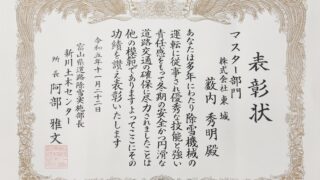 表彰状
マスター部門
株式会社 東城
藪内 秀明 殿
あなたは多年にわたり除雪機械の
運転に従事され優秀な技能と強い
責任感をもって冬期の安全かつ円滑な
道路交通の確保に尽力されましたことは
他の模範でありますよってここにその
功績を讃え表彰いたします
令和五年十一月二十二日
富山県道路除雪実施部長
新川土木センター
所長 阿部 雅文